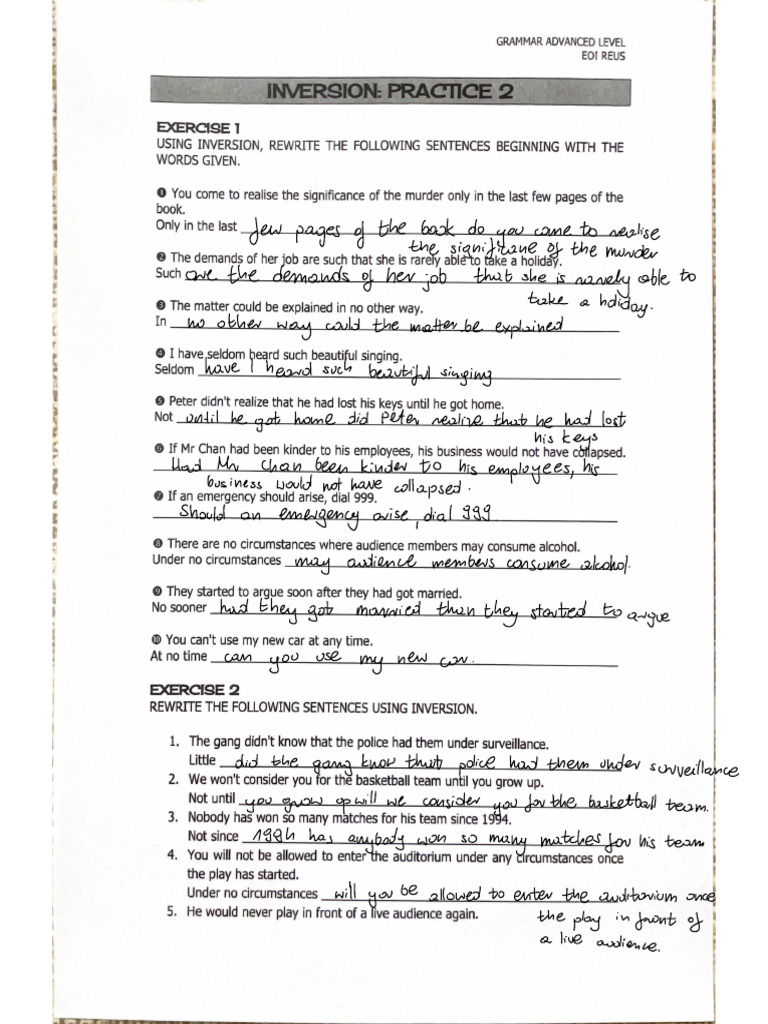 GRAMMAR ADVANCED LEVEL
EOI REUS
INVERSION: PRACTICE 2
EXERCISE 1
USING INVERSION, REWRITE THE FOLLOWING SENTENCES BEGINNING WITH THE
WORDS GIVEN.
❶ You come to realise the significance of the murder only in the last few pages of the
book.
Only in the last few pages of the book do you come to realise
the signifitane of the murder
❷ The demands of her job are such that she is rarely able to take a holiday.
Such are the demands of her job that she is rarely able to
take a holiday.
❸ The matter could be explained in no other way.
In no other way could the matter be explained
❹ I have seldom heard such beautiful singing.
Seldom have I heard such beautiful singing
❺ Peter didn't realize that he had lost his keys until he got home.
Not until he got home did Peter realize that he had lost
his keys
❻ If Mr Chan had been kinder to his employees, his business would not have collapsed.
Had Mr Chan been kinder to his employees, his
business would not have collapsed.
❼ If an emergency should arise, dial 999.
Should an emergency arise, dial 999
❽ There are no circumstances where audience members may consume alcohol.
Under no circumstances may audience members consume alcohol.
❾ They started to argue soon after they had got married.
No sooner had they got married than they started to argue
❿ You can't use my new car at any time.
At no time can you use my new car.
EXERCISE 2
REWRITE THE FOLLOWING SENTENCES USING INVERSION.
1. The gang didn't know that the police had them under surveillance.
Little did the gang know that police had them under surveillance
2. We won't consider you for the basketball team until you grow up.
Not until you grow up will we consider you for the basketball team.
3. Nobody has won so many matches for his team since 1994.
Not since 1994 has anybody won so many matches for his team
4. You will not be allowed to enter the auditorium under any circumstances once
the play has started.
Under no circumstances will you be allowed to enter the auditorium once
5. He would never play in front of a live audience again.
the play in front of
a live audience.